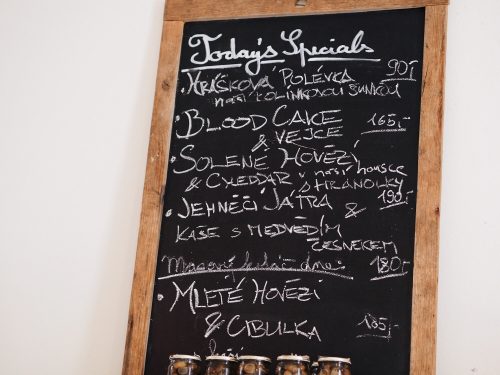 Today's Specials
• Hrášková Polévka 90,-
naší kolínkovou šunkou
• Blood Cake 165,-
& vejce
• Solené Hovězí
& Cheddar v naší housce
s hranolky
190,-
• Jehněčí Játra &
kaše s medvědím
česnekem
Masový koláč dne: 180,-
• Mleté Hovězí
& Cibulka 185,-